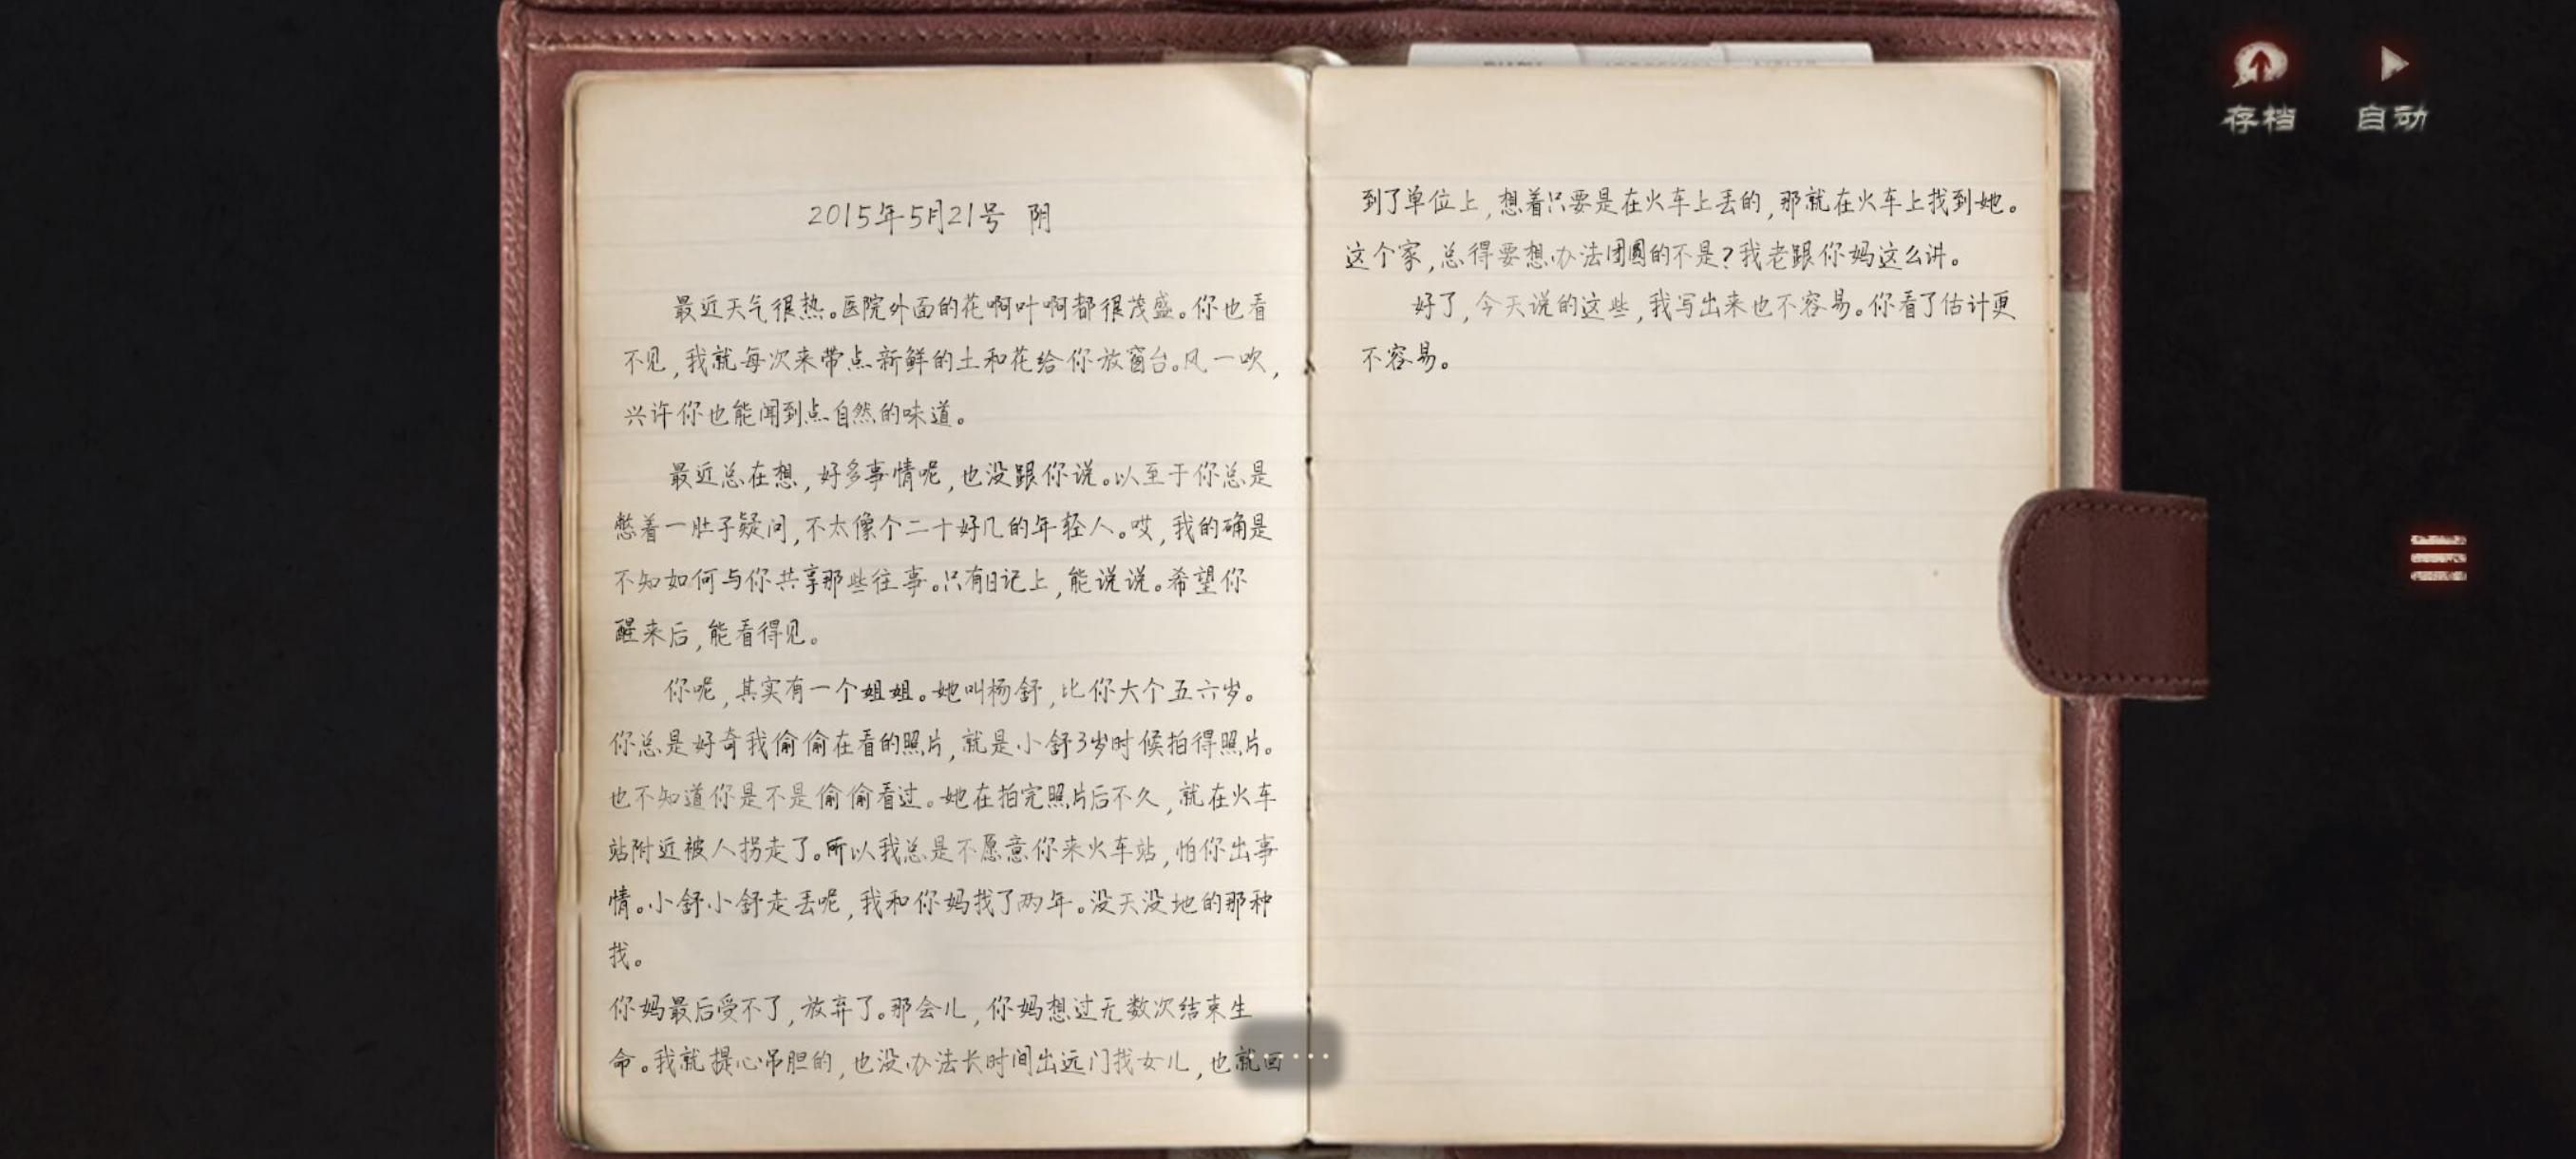 存档
自动
2015年5月21号 阴
最近天气很热。医院外面的花啊叶啊都很茂盛。你也看
不见,我就每次来带点新鲜的土和花给你放窗台。风一吹,
兴许你也能闻到点自然的味道。
最近总在想,好多事情呢,也没跟你说。以至于你总是
憋着一肚子疑问,不太像个二十好几的年轻人。哎,我的确是
不知如何与你共享那些往事。只有日记上,能说说。希望你
醒来后,能看得见。
你呢,其实有一个姐姐。她叫杨舒,比你大个五六岁。
你总是好奇我偷偷在看的照片,就是小舒3岁时候拍得照片。
也不知道你是不是偷偷看过。她在拍完照片后不久,就在火车
站附近被人拐走了。所以我总是不愿意你来火车站,怕你出事
情。小舒小舒走丢呢,我和你妈找了两年。没天没地的那种
找。
你妈最后受不了,放弃了。那会儿,你妈想过无数次结束生
命。我就提心吊胆的,也没办法长时间出远门找女儿,也就回
到了单位上,想着只要是在火车上丢的,那就在火车上找到她。
这个家,总得要想办法团圆的不是?我老跟你妈这么讲。
好了,今天说的这些,我写出来也不容易。你看了估计更
不容易。